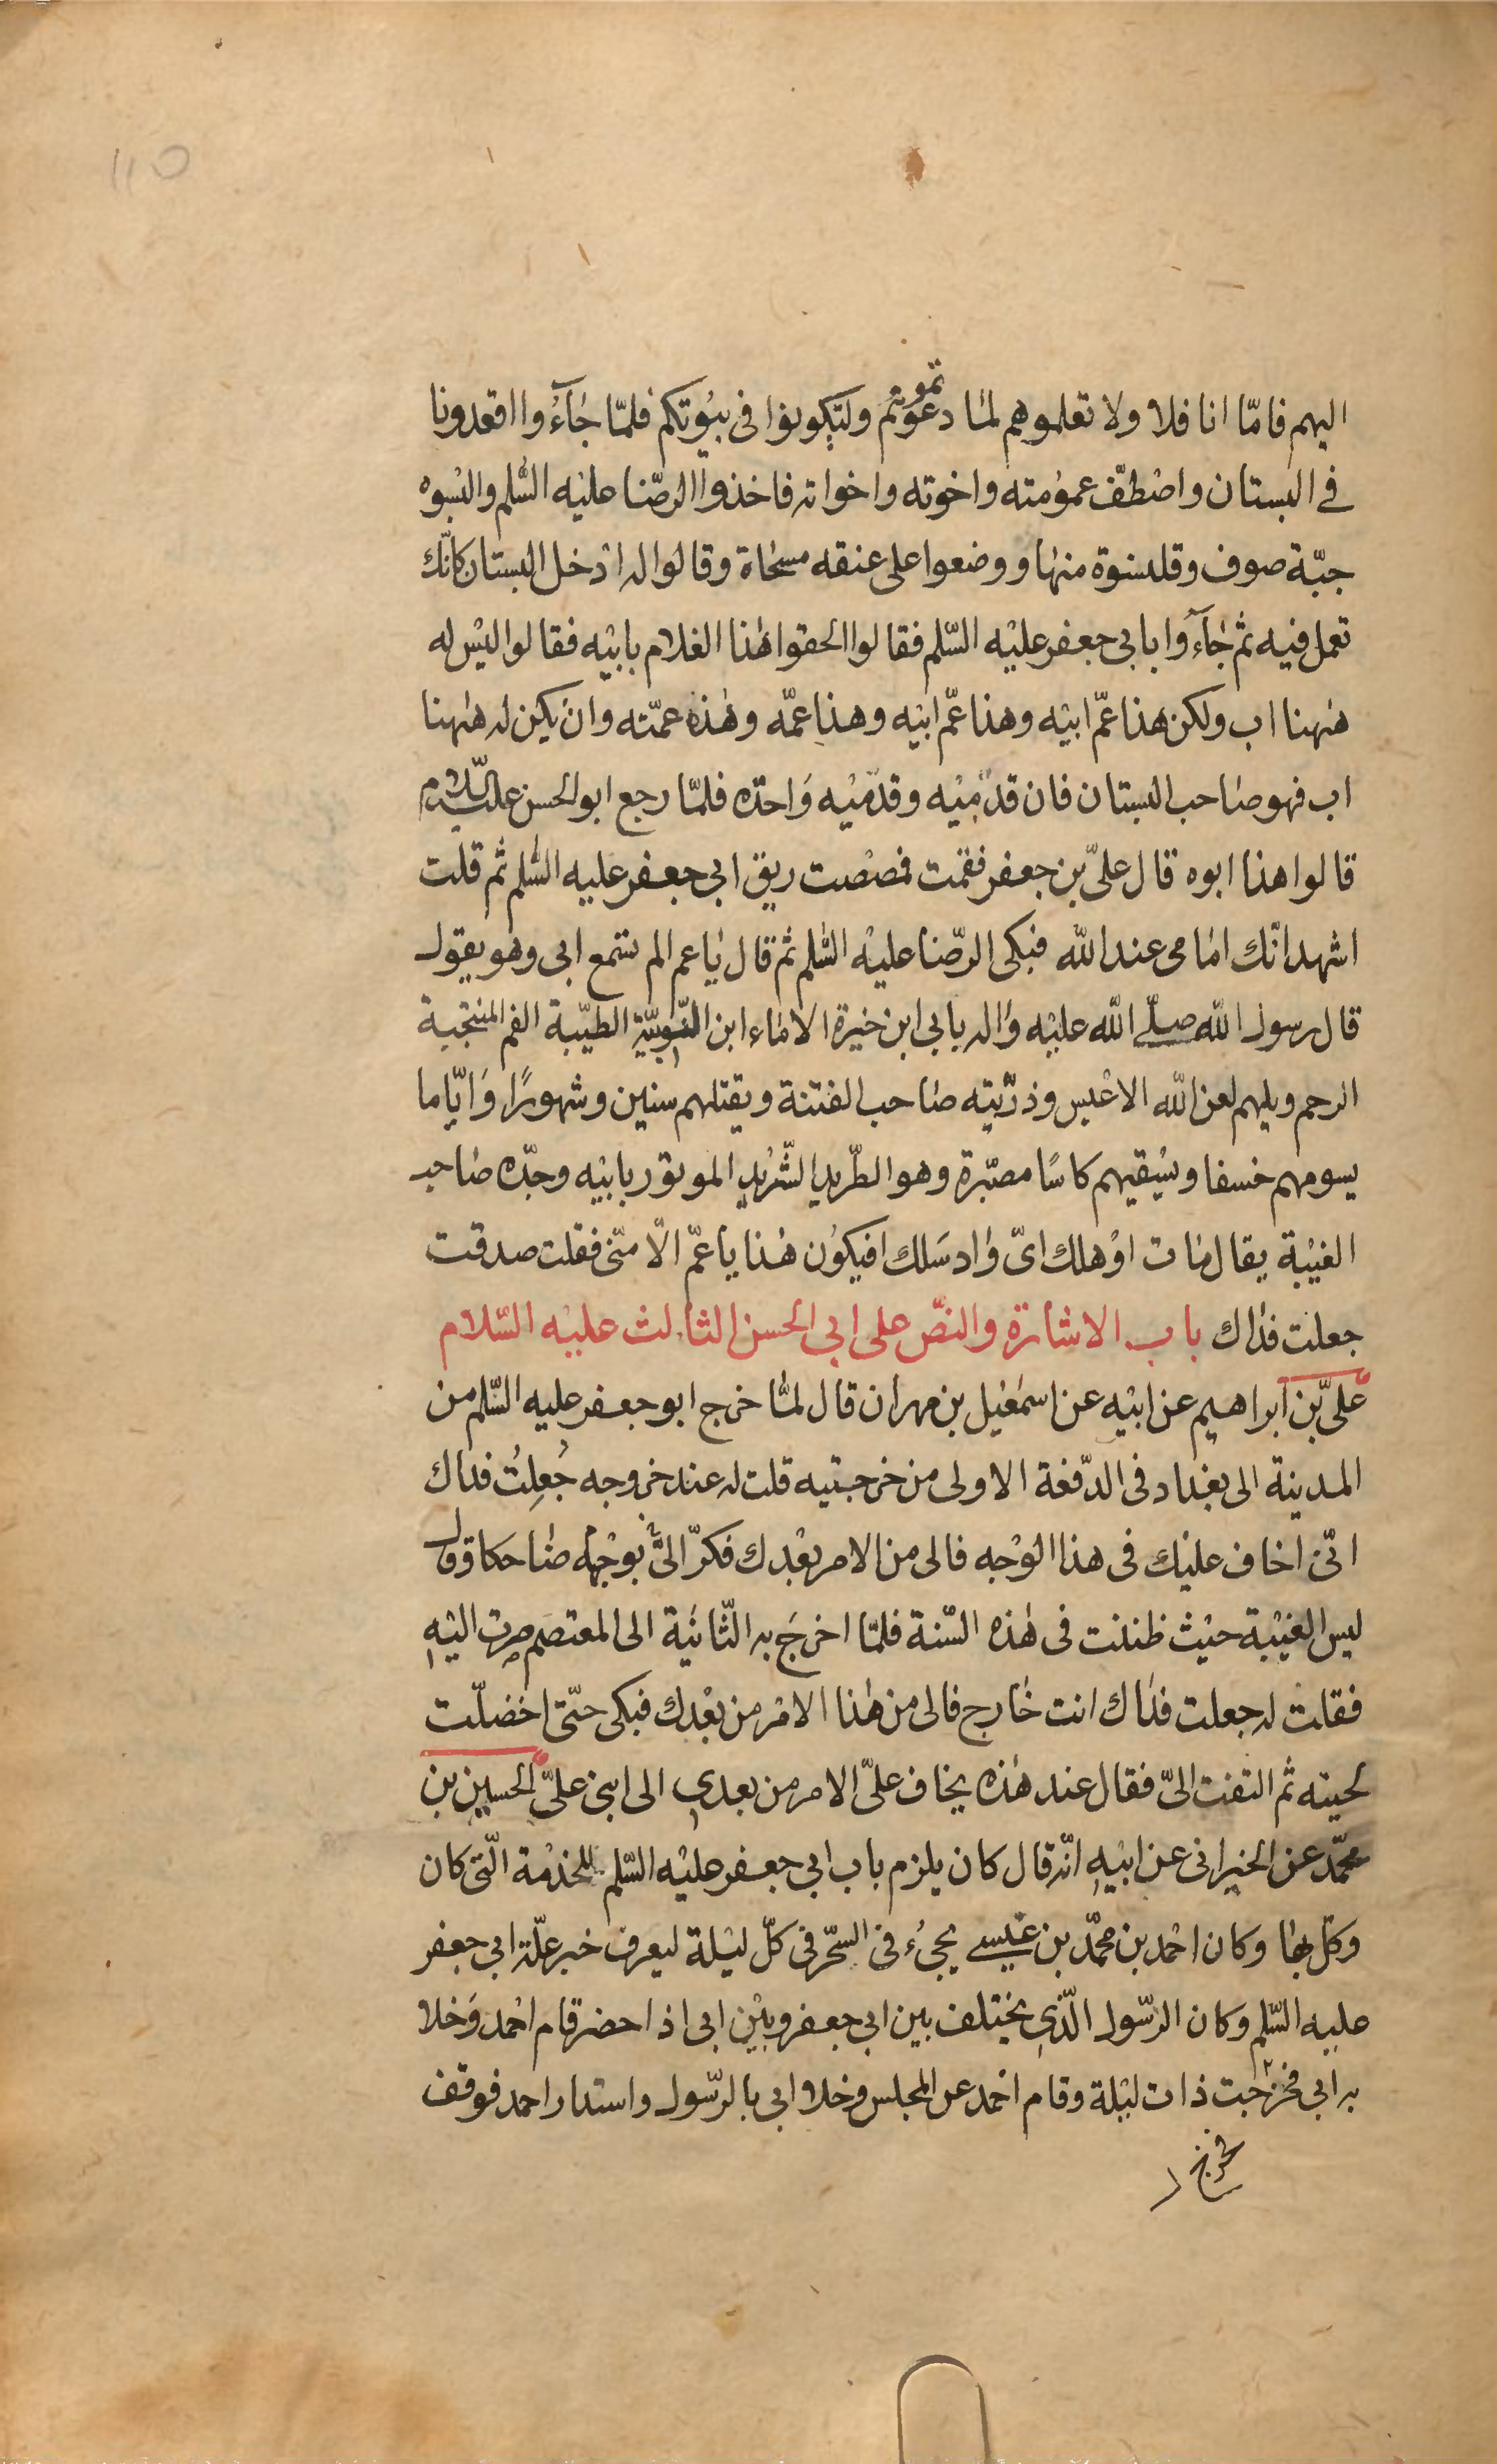 ١١٥
اليهم فامّا انا فلا ولا تعلموهم لما دعوتموهم ولتكونوا فى بيُوتكم فلمّا جآءُوا اقعدونا
فے البستان واصْطفّ عمومته واخوته واخواته فاخذوا الرضا عليْه السّلم والبسوه
جبّة صوف وقلنسوة منها ووضعوا على عنقه مسحاة وقالوا له ادخل البستان كانّك
تعمل فيه ثم جآءوا بابى جعفر عليْه السّلم فقالوا الحقوا هذا الغلام بابيْه فقالوا ليْس له
هٰهنا اب ولكن هذا عمّ ابيْه وهذا عمّ ابيْه وهذا عمّه وهٰذه عمّته وان يكن له هٰهنا
اب فهو صاحب البستان فان قدميْه وقدميْه واحدة فلمّا رجع ابو الحسن عليه السّلام
قالوا هذا ابوه قال علىّ بن جعفر فقمت فمصصت ريق ابى جعفر عليه السّلم ثم قلت
اشهد انّك امامى عند الله فبكى الرّضا عليْه السّلم ثم قال يا عم الم تسمع ابى وهو يقول
قال رسول الله صلّے الله عليْه واله بابى ابن خيرة الاماء ابن النّوبيّة الطيّبة الفم المنتجبة
الرحم ويلهم لعن الله الاعْبس وذرّيّته صاحب الفتنة ويقتلهم سنين وشهورًا وَايّاما
يسومهم خسفا ويسْقيهم كاسًا مصبّرة وهو الطّريد الشّريد الموتور بابيْه وجدّه صاحب
الغيْبة يقال مات اوْ هلك اىّ واد سَلك افيكوُن هٰذا يا عمّ الّا منّى فقلت صدقت
جعلت فداك باب الاشارة والنصّ على ابى الحسن الثالث عليْه السّلام
علىّ بن ابراهيم عن ابيْه عن اسمٰعيل بن مهران قال لمّا خرج ابو جعفر عليه السّلم من
المدينة الى بغداد فى الدّفعة الاولى من خرجتيه قلت له عند خروجه جُعِلتُ فداك
انّى اخاف عليْك فى هذا الوْجه فالى من الامر بعْدك فكرّ الىّ بوجْهه ضاحكا وقال
ليس الغيْبة حيْث ظننت فى هٰذه السّنة فلمّا اخرِجَ به الثّانيَة الى المعتصم صرت اليْه
فقلت له جعلت فداك انت خارج فالى من هٰذا الامْر من بعْدك فبكى حتّى اخضلّت
لحيته ثم التفت الىّ فقال عند هٰذه يخاف علىّ الامر من بعدى الى ابنى علىّ الحسين بن
محمّد عن الخيرانى عن ابيْه انّه قال كان يلزم باب ابى جعفر عليْه السّلم للخدْمة الّتى كان
وكّل بها وكان احْمد بن محمّد بن عيْسے يجىُء فى السّحر فى كلّ ليْلة ليعرف خبر علّة ابى جعفر
عليه السّلم وكان الرّسول الّذى يختلف بين ابى جعفر وبيْن ابى اذا حضر قام احْمد وَخلا
به ابى فخرجت ذات ليْلة وقام احْمد عن المجلس وخلا ابى بالرّسول واستدار احمد فوقف